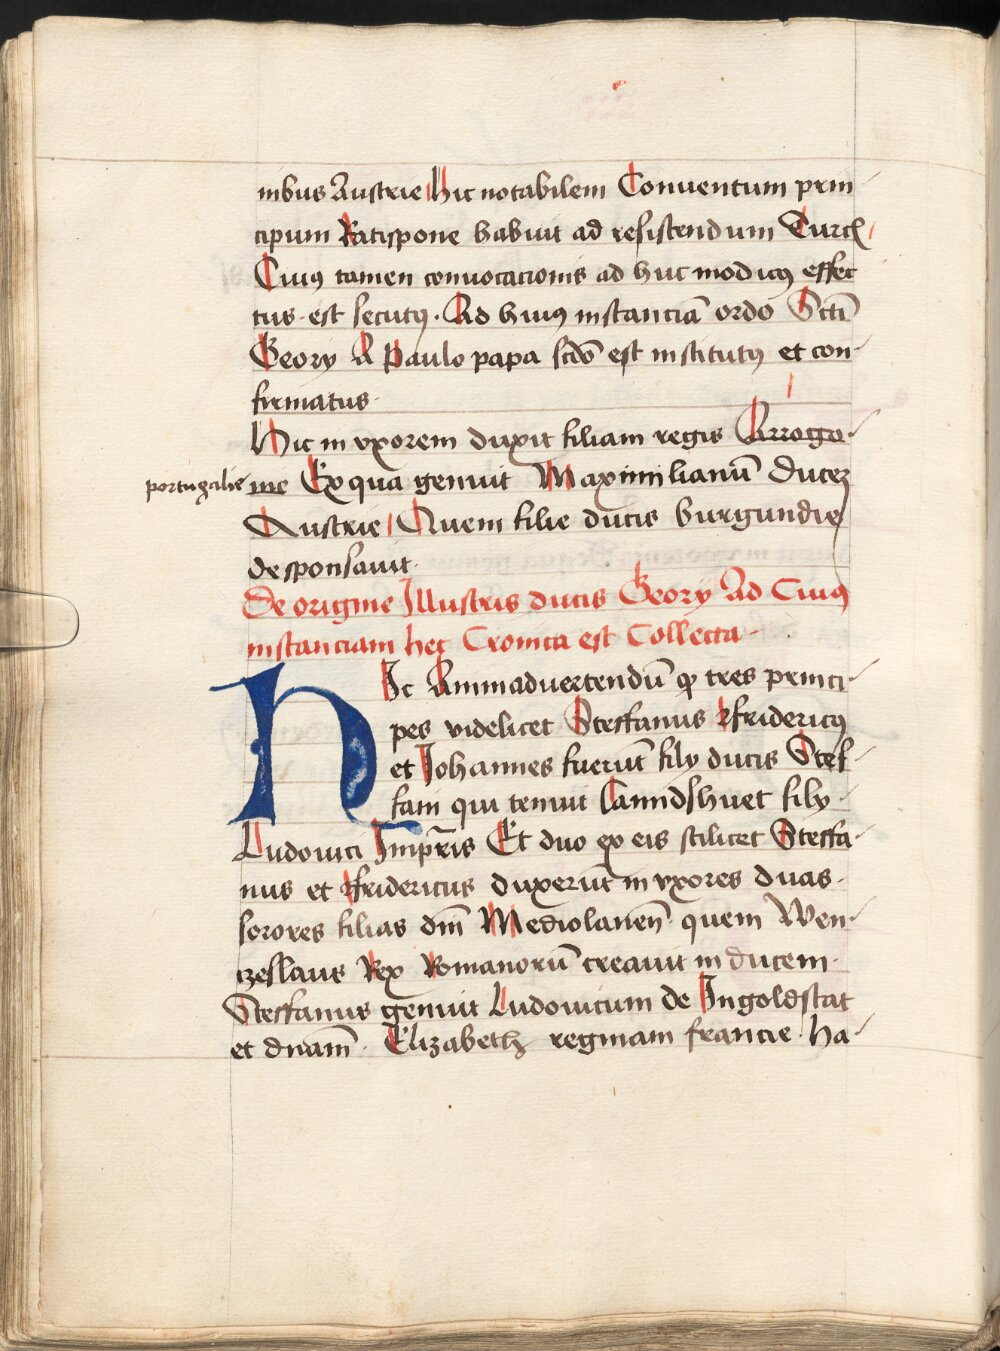 nibus Austrie Hic notabilem Conuentum prin
cipum Ratispone habuit ad resistendum Turcis
Cuius tamen conuocacionis ad huc modicus effec
tus est secutus. Ad huius instanciā ordo Scti
Geory A Paulo papa scdo est institutus et con
firmatus
Hic in vxorem duxit filiam regis Arrogo
portugalie nie Ex qua genuit Maximilianū Ducez
Austrie Quem filie ducis burgundie
desponsauit
De origine Illustris ducis Geory Ad Cuius
instanciam hec Cronica est Collecta
Hic Animaduertendū qz tres princi
pes videlicet Steffanus ffridericus
et Johannes fuerūt fily ducis Stef
fani qui tenuit Lanndshuet fily
Ludouici Imp̄ris Et duo ex eis scilicet Steffa
nus et ffridericus duxerūt in vxores duas
sorores filias dn̄i Mediolaneñ quem Wen
czeslaus Rex Romanorū creauit in ducem
Steffanus genuit Ludouicum de Ingoldstat
et dnam̄ Elizabeth reginam francie ha